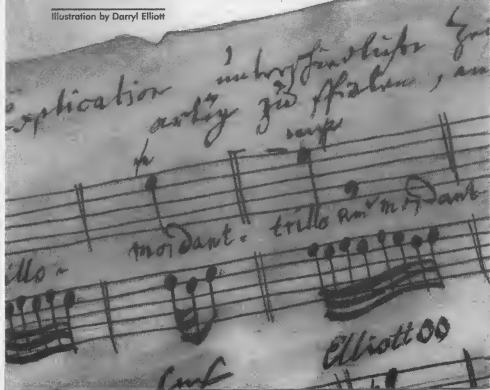 Illustration by Darryl Elliott
Explication unterschiedlicher Zei
artig zu spielen, an
mordant. trillo und mordant
illo.
Elliott00